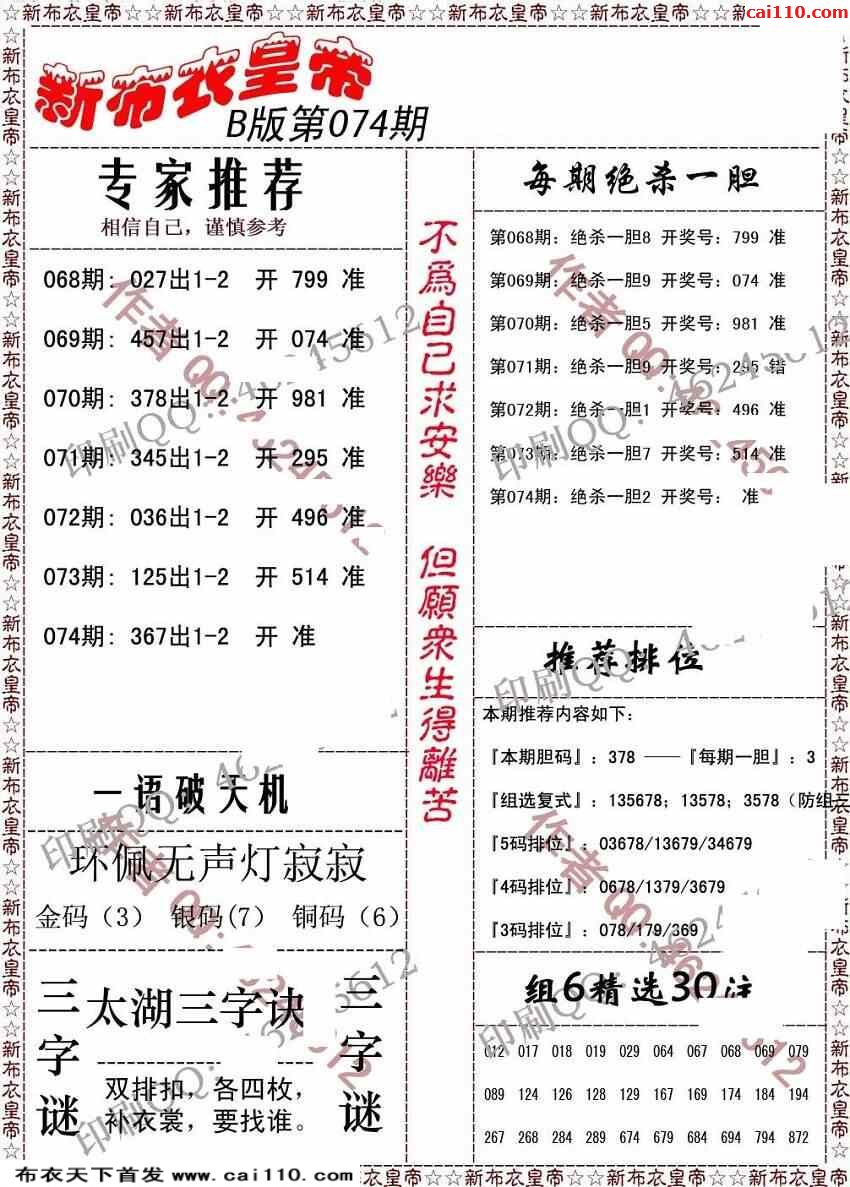 ☆☆新布衣皇帝☆☆新布衣皇帝☆☆新布衣皇帝☆☆新布衣皇帝☆☆新布衣皇帝☆☆
cai110.com
新布衣皇帝
B版第074期
专家推荐
相信自己，谨慎参考
068期: 027出1-2 开 799 准
069期: 457出1-2 开 074 准
070期: 378出1-2 开 981 准
071期: 345出1-2 开 295 准
072期: 036出1-2 开 496 准
073期: 125出1-2 开 514 准
074期: 367出1-2 开 准
一语破天机
环佩无声灯寂寂
金码（3） 银码(7) 铜码（6）
三字谜
太湖三字诀
双排扣，各四枚，
补衣裳，要找谁。
三字谜
不為自己求安樂 但願衆生得離苦
每期绝杀一胆
第068期: 绝杀一胆8 开奖号: 799 准
第069期: 绝杀一胆9 开奖号: 074 准
第070期: 绝杀一胆5 开奖号: 981 准
第071期: 绝杀一胆9 开奖号: 295 错
第072期: 绝杀一胆1 开奖号: 496 准
第073期: 绝杀一胆7 开奖号: 514 准
第074期: 绝杀一胆2 开奖号: 准
推荐排位
本期推荐内容如下:
『本期胆码』: 378 ——『每期一胆』: 3
『组选复式』: 135678; 13578; 3578（防组三
『5码排位』: 03678/13679/34679
『4码排位』: 0678/1379/3679
『3码排位』: 078/179/369
组6精选30注
012 017 018 019 029 064 067 068 069 079
089 124 126 128 129 167 169 174 184 194
267 268 284 289 674 679 684 694 794 872
布衣天下首发 www.cai110.com
衣皇帝☆☆新布衣皇帝☆☆新布衣皇帝☆☆新布衣皇帝☆☆